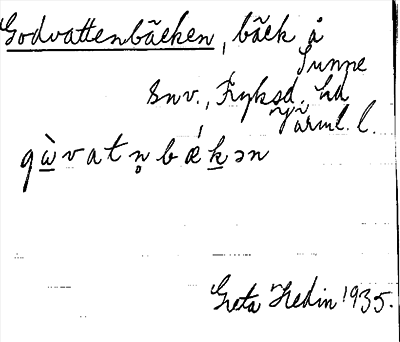 Godvattenbäcken, bäck å
Sunne
snv., Fryksd. hd
Värml. l.
gὼvatn̥bǽkən
Greta Hedin 1935.